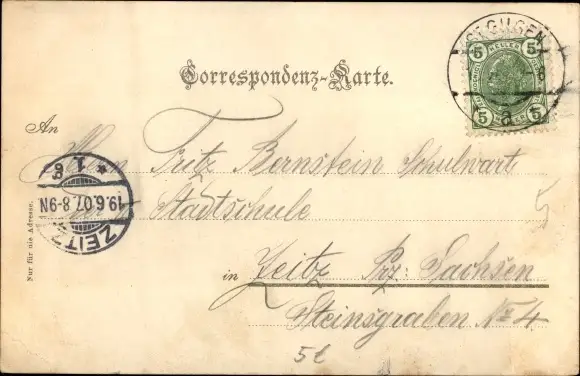 5 HELLER 5
5 5
a
Correspondenz-Karte.
An
Herrn Fritz Bernstein Schulwart
Stadtschule
in Zeitz Prz. Sachsen
Steinsgraben No 4
* 1 6
19.6.07.8-9N
ZEITZ
Nur für die Adresse.